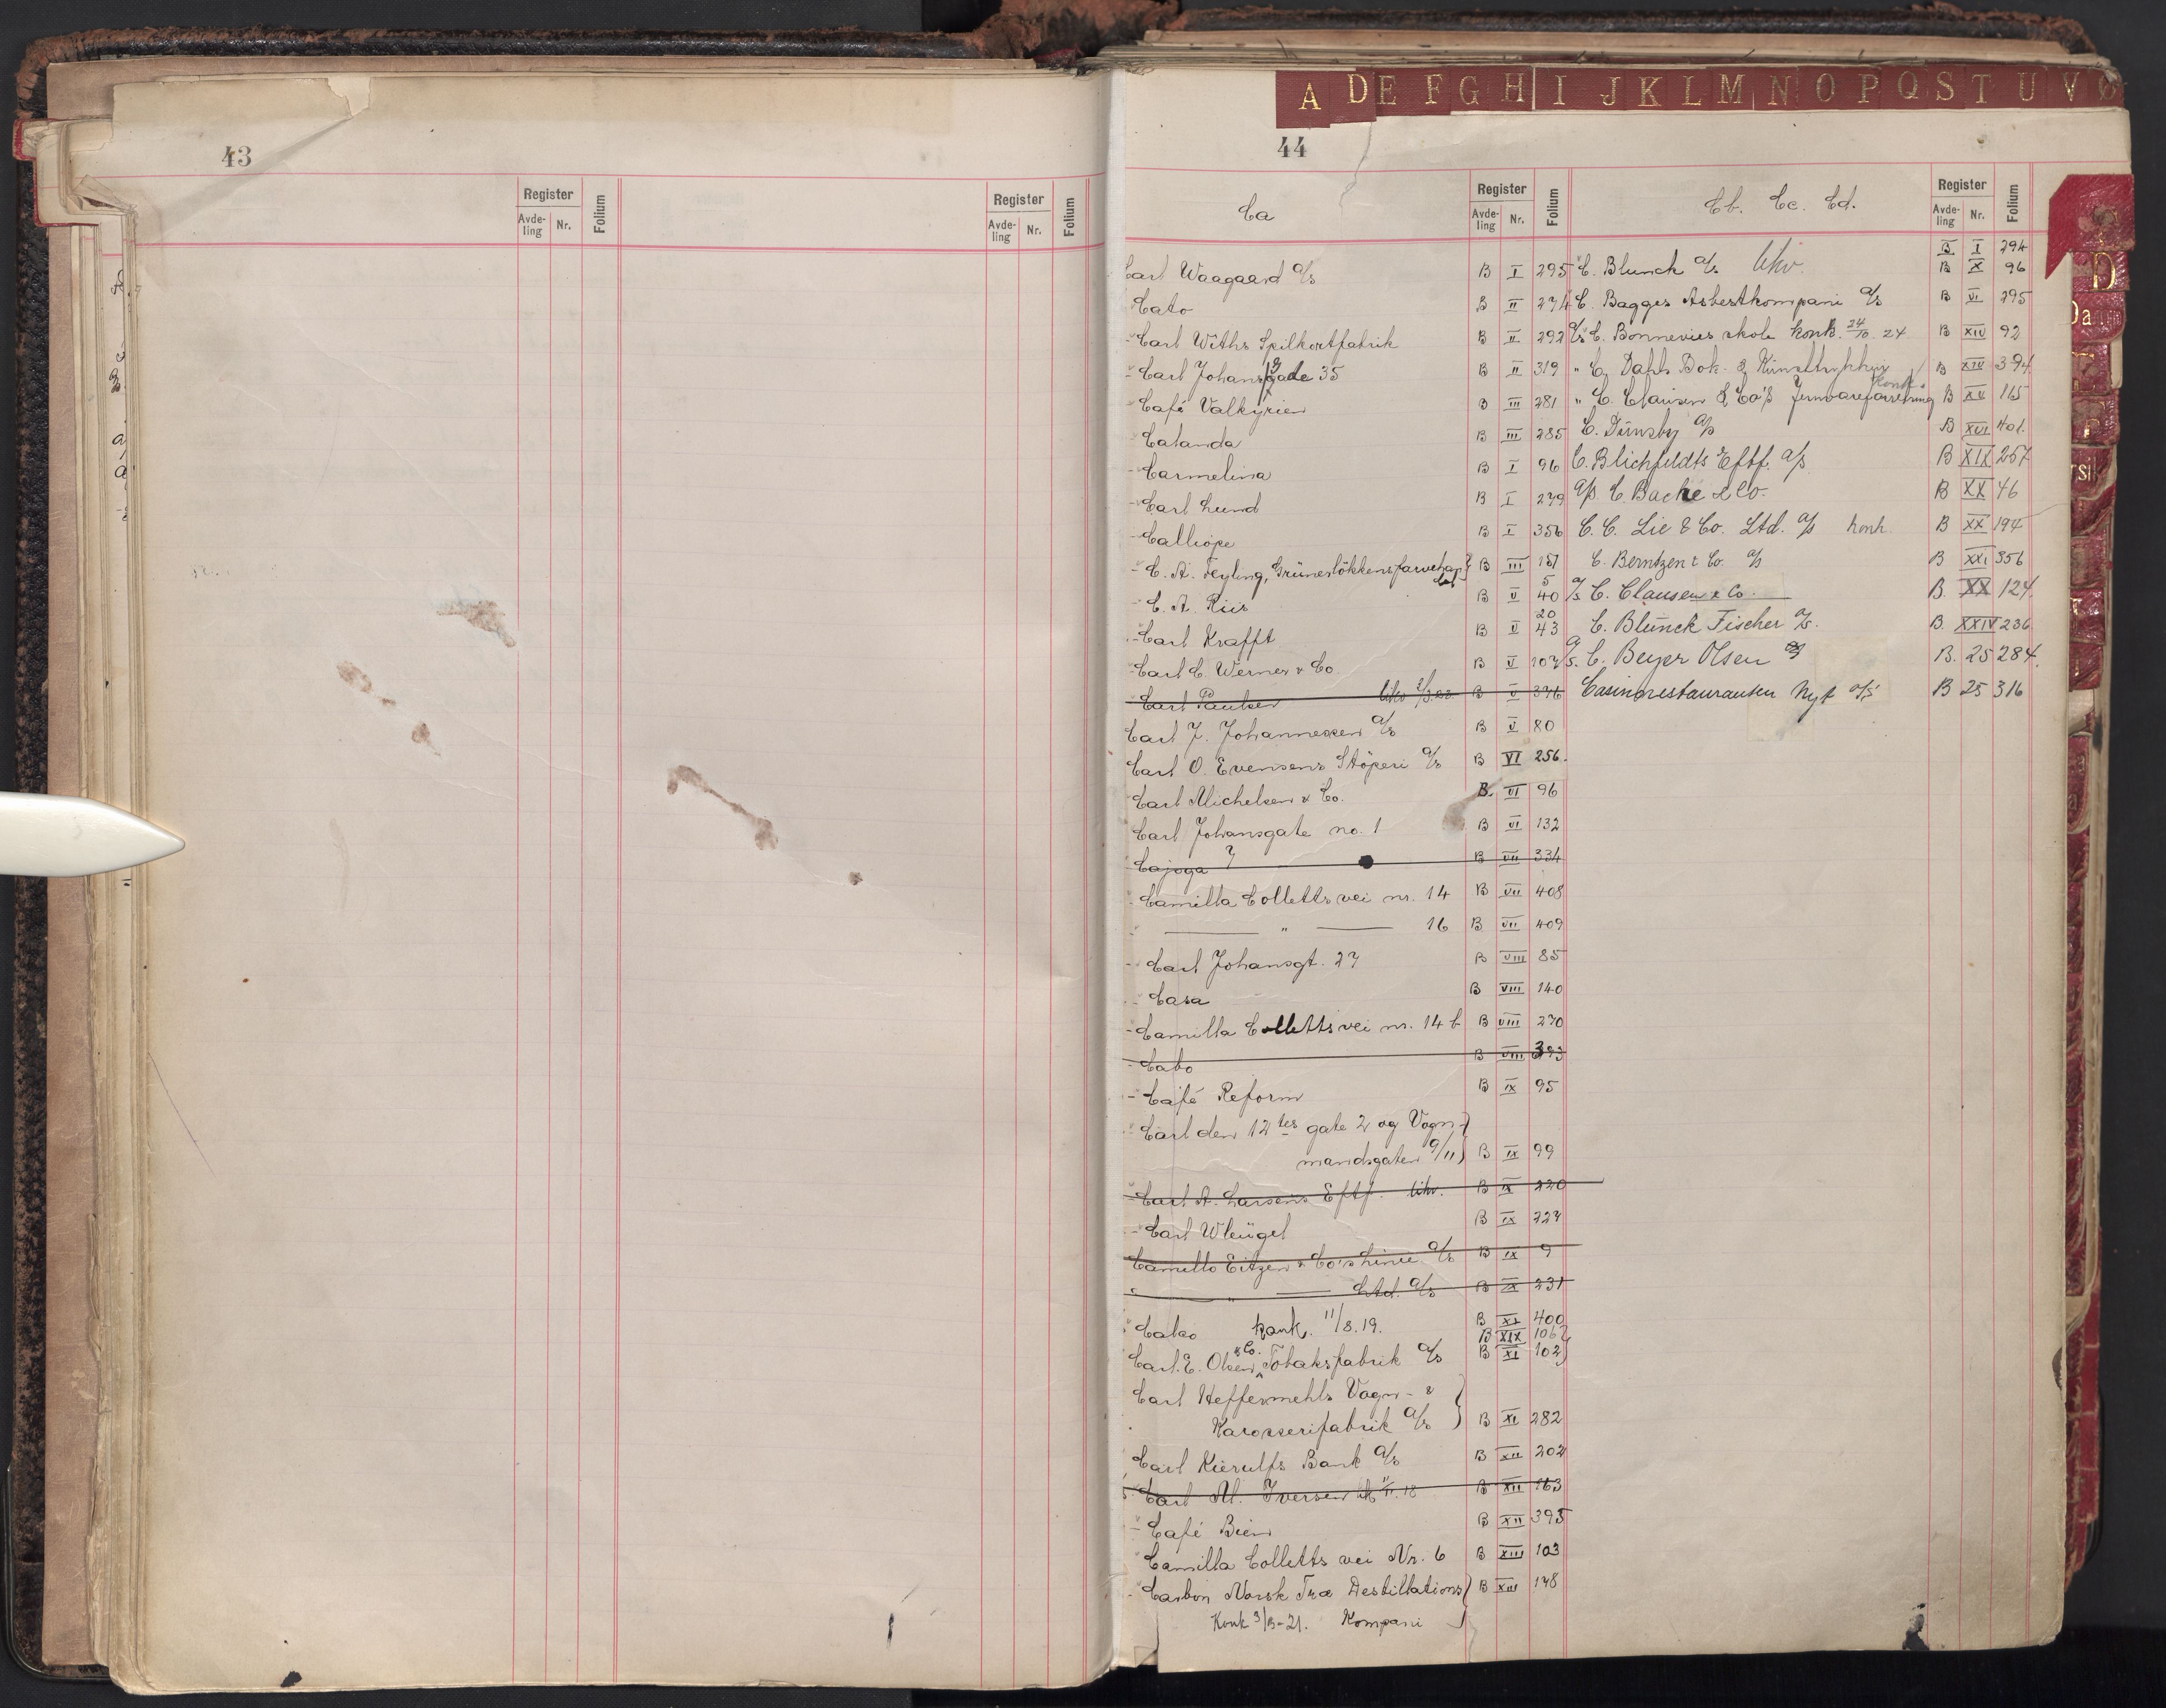 A D E F G H I J K L M N O P Q S T U V Ø
43
44
Register Folium Register Folium
Avde-ling Nr. Avde-ling Nr.
Ca Register Folium
Avde-ling Nr.
Carl Waagaard a/s B I 295
Cato B II 274
Carl Withs Spilkortfabrik B II 292
Carl Johansgade 35 B II 319
Café Valkyrien B III 281
Calanda B III 285
Carmelina B I 96
Carl Lund B I 239
Calliope B I 356
C. A. Feyling, Grünerløkkens farvehandel B III 151
C. A. Riis B V 5 40
Carl Krafft B V 20 43
Carl C. Werner & Co. B V 107
Carl Paulsen likv B V 376
Carl J. Johannessen a/s B V 80
Carl O. Evensens Støperi a/s B VI 256
Carl Michelsen & Co. B VI 96
Carl Johansgate no. 1 B VI 132
Cajoga B VII 334
Camilla Colletts vei nr. 14 B VII 408
— " — 16 B VII 409
Carl Johansgt. 27 B VIII 85
Casa B VIII 140
Camilla Colletts vei nr. 14 b B VIII 270
Cabo B VIII 393
Café Reform B IX 95
Carl den 12tes gate 2 og Vogn-
mandsgaten 9/11 B IX 99
Carl A. Larsens Eftf. likv. B IX 220
Carl Wleügel B IX 227
Camillo Eitzen & Co's Linie a/s B IX 9
— " — Ltd. a/s B IX 231
Calco konk. 11/8.19. B XI 400
B XIX 106
Carl E. Olsen & Co. Tobaksfabrik a/s B XI 102
Carl Heffermehls Vogn- &
Karosserifabrik a/s B XI 282
Carl Kierulfs Bank a/s B XII 202
Carl M. Iversen B XII 163
Café Bien B XII 395
Camilla Colletts vei Nr. 6 B XIII 103
Carbon Norsk Træ Destillations B XIII 178
Konk 3/8-21. Kompani
Cb. Cc. Cd. Register Folium
Avde-ling Nr.
B I 294
C. Blunck a/s likv. B X 96
C. Bagges Asbestkompani a/s B VI 295
a/s C. Bonnevies skole konk. 24/10 24 B XIV 92
" C. Dahls Bok- & Kunsttrykkeri B XIV 394
Konk.
" C. Clausen & Co's Jernvareforretning B XV 165
C. Dürnsby a/s B XVI 401
C. Blichfeldts Eftf. a/s B XIX 257
a/s C. Backe & Co. B XX 46
C. C. Lie & Co. Ltd. a/s konk. B XX 194
C. Berntzen & Co a/s B XXI 356
a/s C. Clausen & Co. B. XX 124
C. Blunck Fischer a/s. B. XXIV 236
a/s. C. Beyer Olsen B. 25 284
Casinorestauranten Nyt a/s B 25 316
D